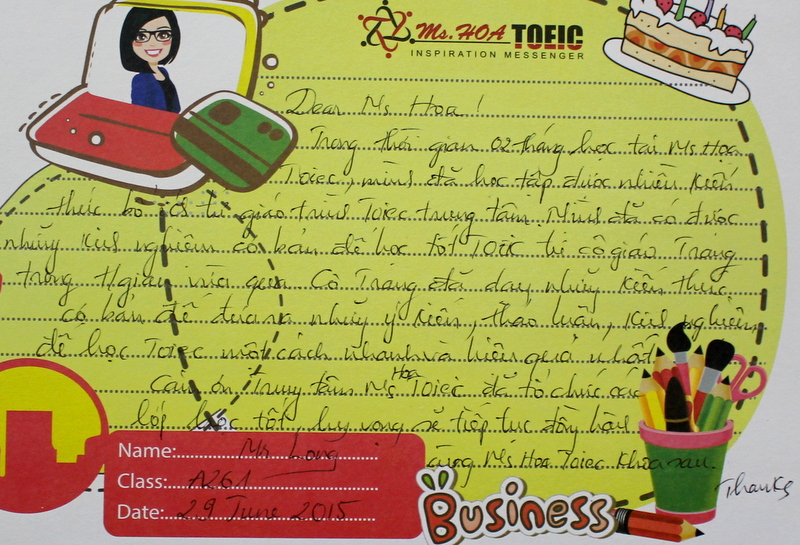 Ms. HOA TOEIC
INSPIRATION MESSENGER
Dear Ms Hoa!
Trong thời gian 02 tháng học tại Ms Hoa
Toeic, mình đã học tập được nhiều kiến
thức bổ từ giáo Toeic trung tâm. Mình đã có được
những kinh nghiệm cơ bản để học tốt TOEIC từ cô giáo Trang
trong t/gian vừa qua. Cô Trang đã dạy những kiến thức
cơ bản để đưa ra những ý kiến, thảo luận, kinh nghiệm
để học Toeic một cách nhanh và hiệu quả nhất
Cảm ơn Trung tâm Ms Hoa Toeic đã tổ chức các
lớp học tốt, hy vọng sẽ tiếp tục đồng hành
cùng Ms Hoa Toeic khóa sau.
Thanks
Name: Mr Long
Class: A261
Date: 29 June 2015
Business